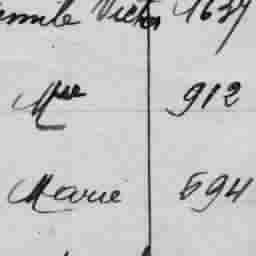 Emile Victor 1637
Mlle 912
Marie 594